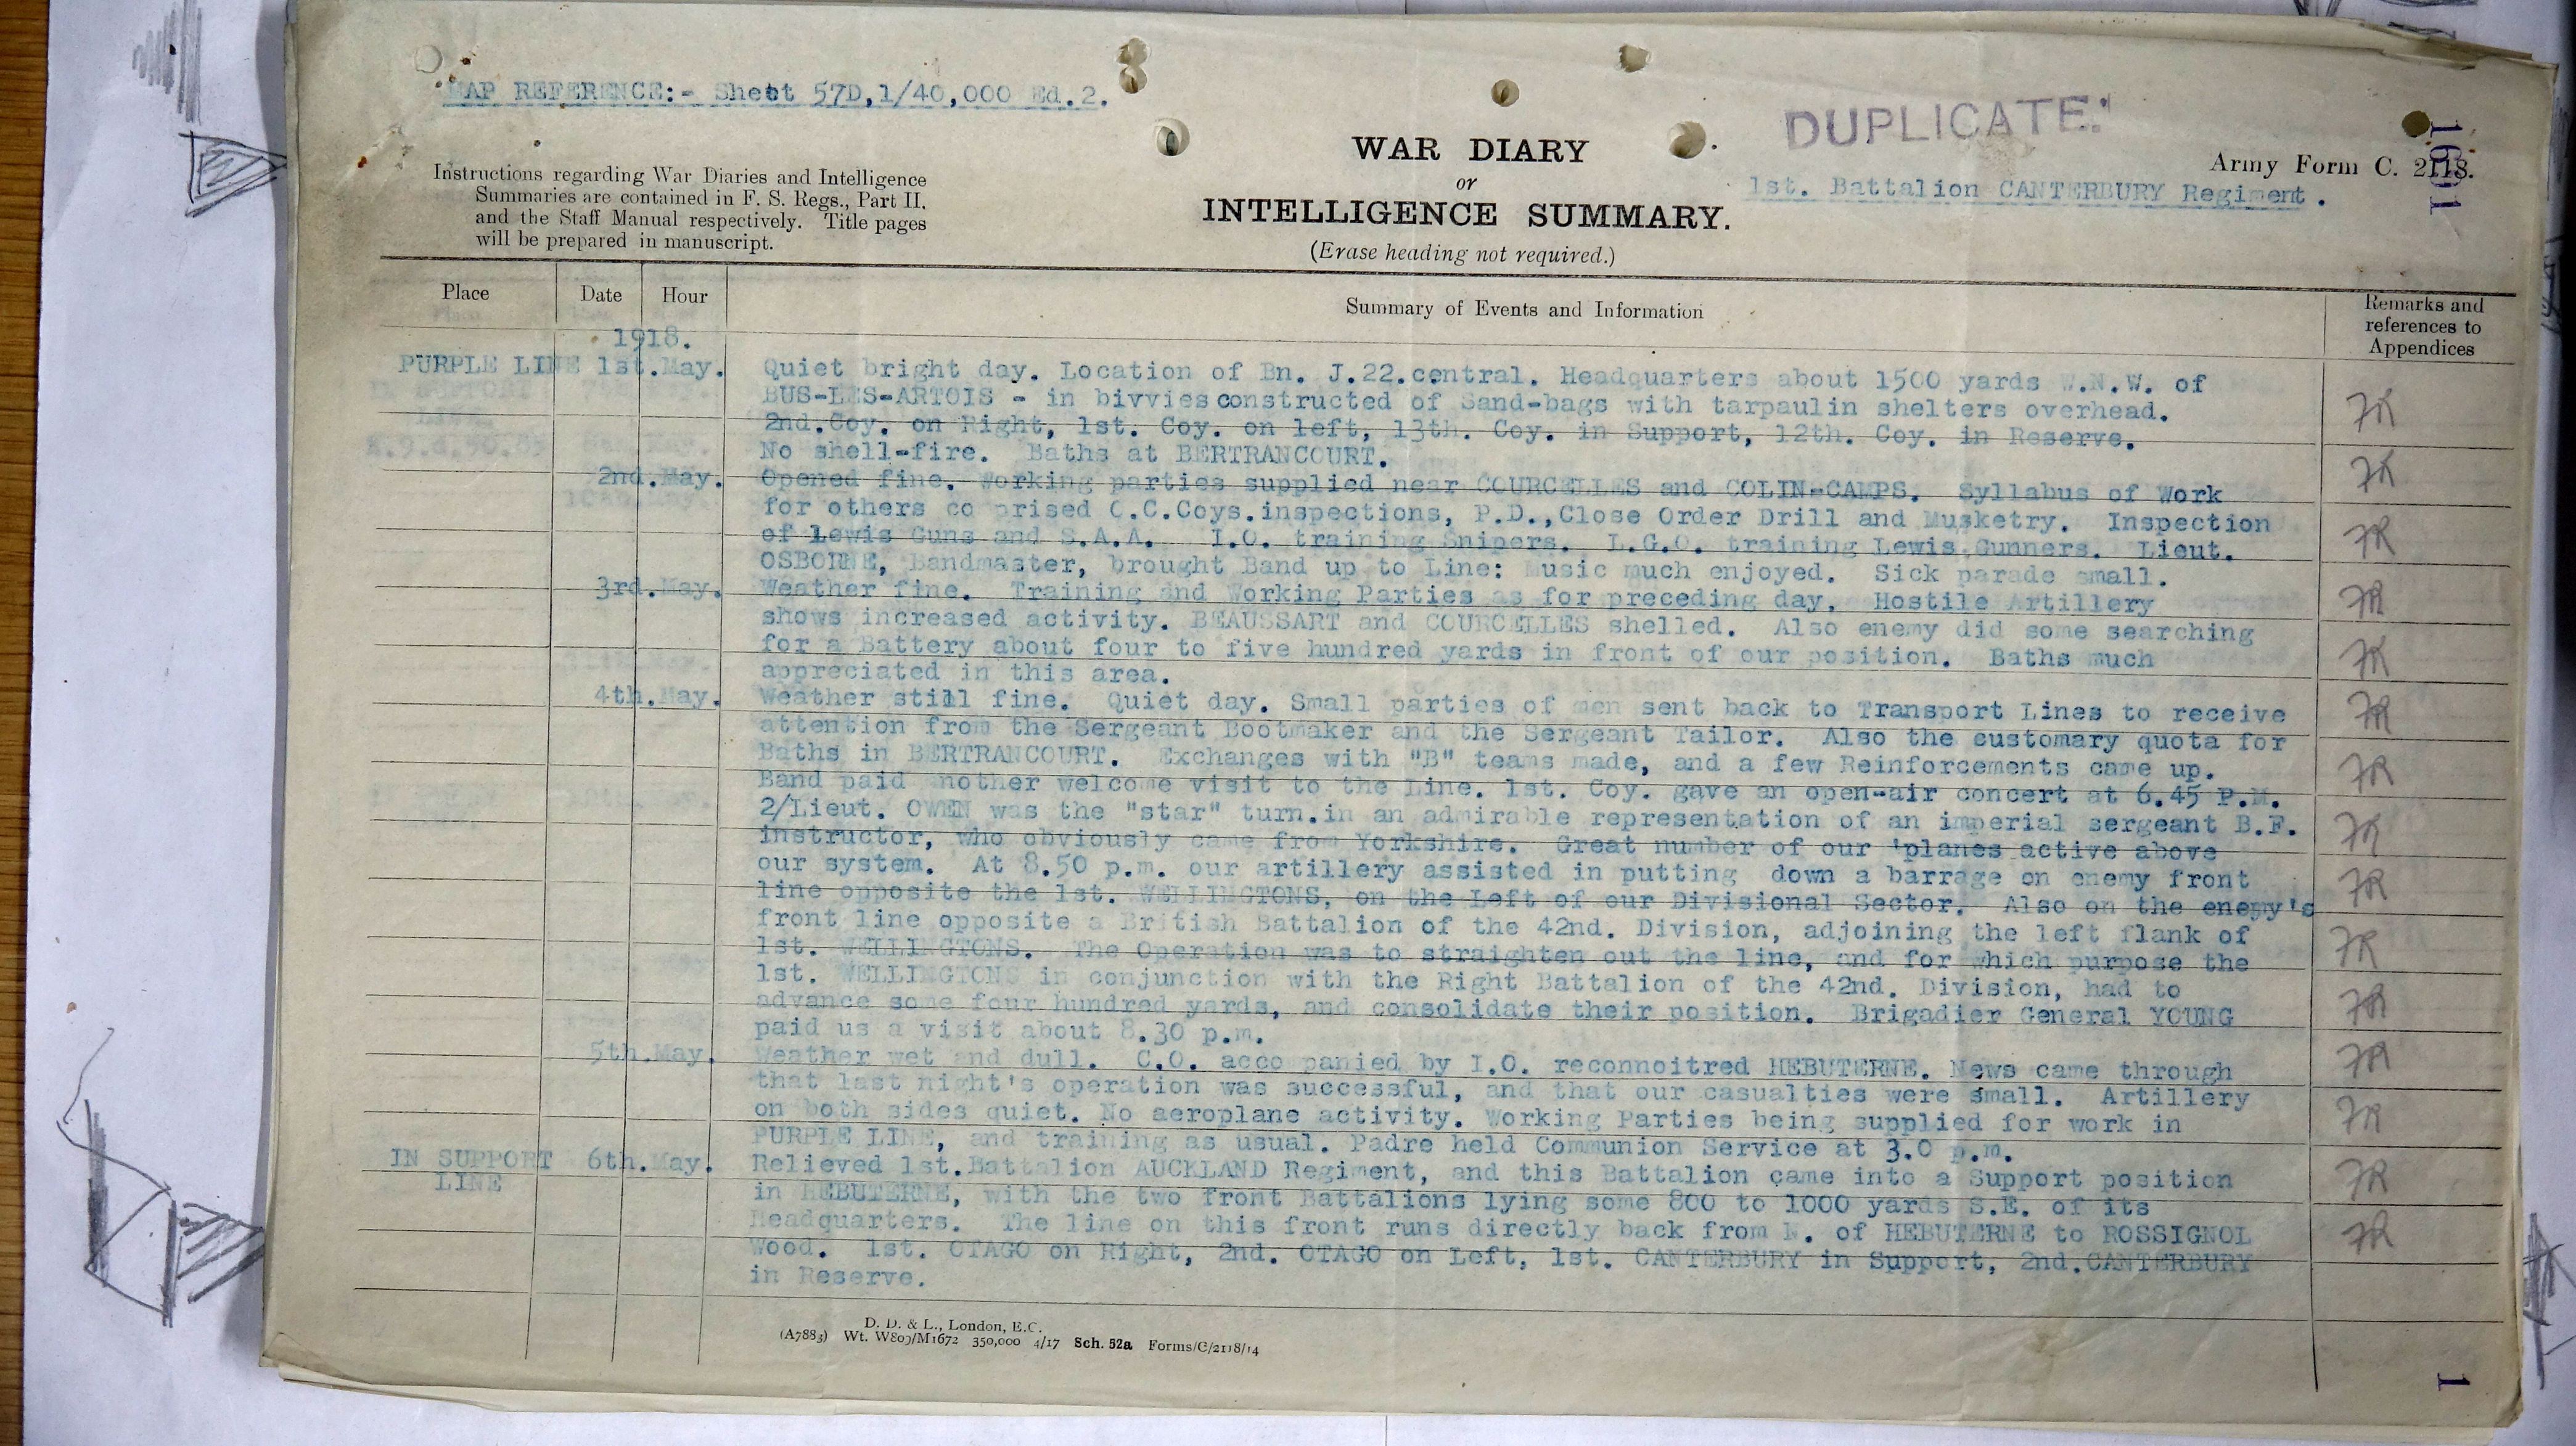 MAP REFERENCE:- Sheet 57D,1/40,000 Ed.2.
DUPLICATE.
WAR DIARY
or
INTELLIGENCE SUMMARY.
(Erase heading not required.)
Army Form C. 2118.
1st. Battalion CANTERBURY Regiment.
Instructions regarding War Diaries and Intelligence
Summaries are contained in F. S. Regs., Part II,
and the Staff Manual respectively. Title pages
will be prepared in manuscript.
Place Date Hour Summary of Events and Information Remarks and
references to
Appendices
1918.
PURPLE LINE 1st.May. Quiet bright day. Location of Bn. J.22.central. Headquarters about 1500 yards W.N.W. of
BUS-LES-ARTOIS - in bivvies constructed of Sand-bags with tarpaulin shelters overhead.
2nd.Coy. on Right, 1st. Coy. on left, 13th. Coy. in Support, 12th. Coy. in Reserve.
No shell-fire. Baths at BERTRANCOURT.
2nd.May. Opened fine. Working parties supplied near COURCELLES and COLIN-CAMPS. Syllabus of Work
for others co prised O.C.Coys.inspections, P.D.,Close Order Drill and Musketry. Inspection
of Lewis Guns and S.A.A. I.O. training Snipers. L.G.O. training Lewis Gunners. Lieut.
OSBORNE, Bandmaster, brought Band up to Line: Music much enjoyed. Sick parade small.
3rd.May. Weather fine. Training and Working Parties as for preceding day. Hostile Artillery
shows increased activity. BEAUSSART and COURCELLES shelled. Also enemy did some searching
for a Battery about four to five hundred yards in front of our position. Baths much
appreciated in this area.
4th.May. Weather still fine. Quiet day. Small parties of men sent back to Transport Lines to receive
attention from the Sergeant Bootmaker and the Sergeant Tailor. Also the customary quota for
Baths in BERTRANCOURT. Exchanges with "B" teams made, and a few Reinforcements came up.
Band paid another welcome visit to the Line. 1st. Coy. gave an open-air concert at 6.45 P.M.
2/Lieut. OWEN was the "star" turn.in an admirable representation of an imperial sergeant B.F.
instructor, who obviously came from Yorkshire. Great number of our 'planes active above
our system. At 8.50 p.m. our artillery assisted in putting down a barrage on enemy front
line opposite the 1st. WELLINGTONS, on the Left of our Divisional Sector. Also on the enemy's
front line opposite a British Battalion of the 42nd. Division, adjoining the left flank of
1st. WELLINGTONS. The Operation was to straighten out the line, and for which purpose the
1st. WELLINGTONS in conjunction with the Right Battalion of the 42nd. Division, had to
advance some four hundred yards, and consolidate their position. Brigadier General YOUNG
paid us a visit about 8.30 p.m.
5th.May. Weather wet and dull. C.O. acco panied by I.O. reconnoitred HEBUTERNE. News came through
that last night's operation was successful, and that our casualties were small. Artillery
on both sides quiet. No aeroplane activity. Working Parties being supplied for work in
PURPLE LINE, and training as usual. Padre held Communion Service at 3.0 p.m.
IN SUPPORT 6th.May. Relieved 1st.Battalion AUCKLAND Regiment, and this Battalion came into a Support position
LINE in HEBUTERNE, with the two front Battalions lying some 800 to 1000 yards S.E. of its
Headquarters. The line on this front runs directly back from N. of HEBUTERNE to ROSSIGNOL
Wood. 1st. OTAGO on Right, 2nd. OTAGO on Left, 1st. CANTERBURY in Support, 2nd.CANTERBURY
in Reserve.
D. D. & L., London, E.C.
(A7883) Wt. W809/M1672 350,000 4/17 Sch. 52a Forms/C/2118/14
1